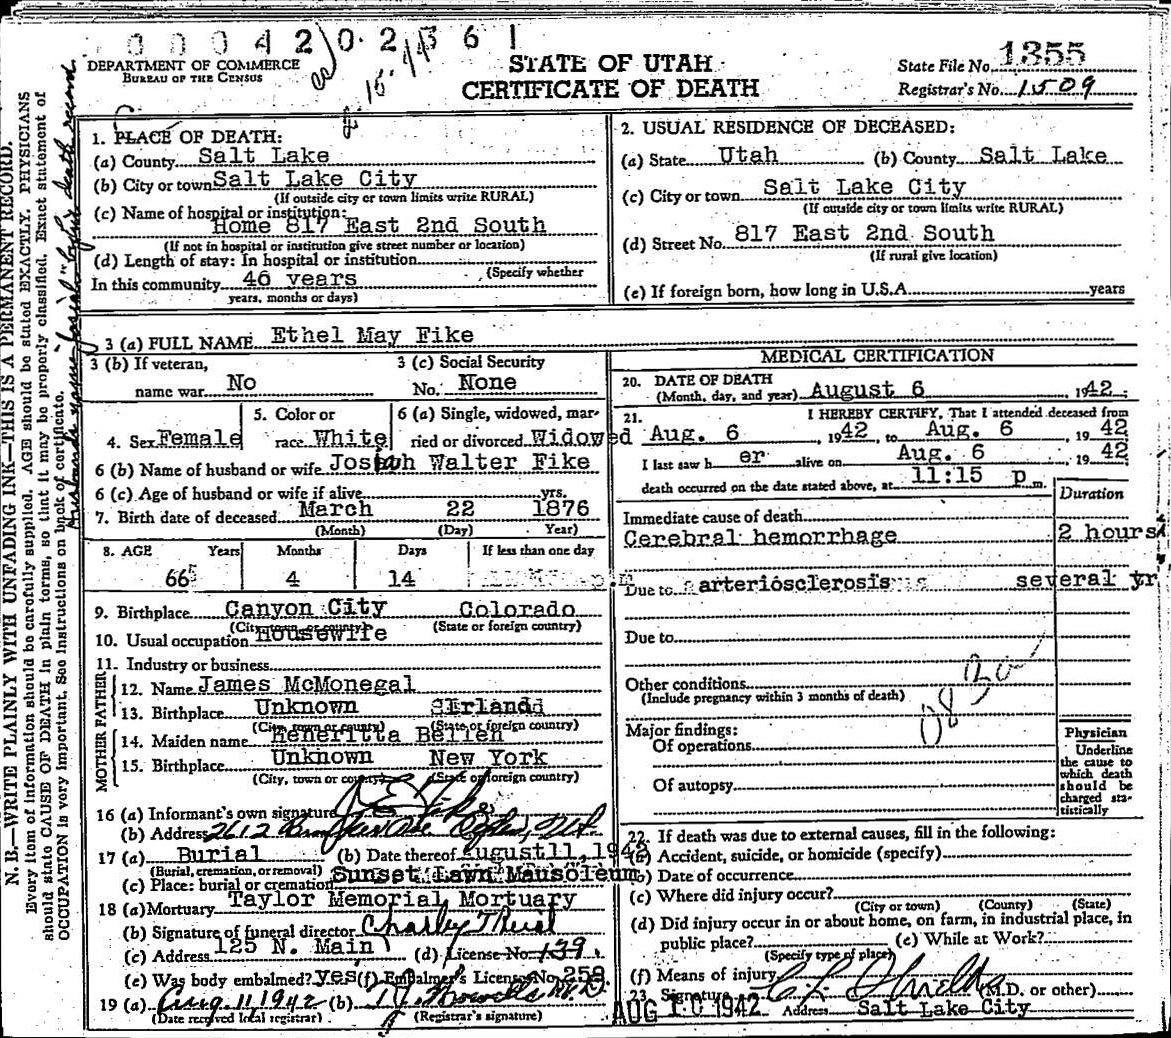 0 0 0 4 2 0 2 3 6 1
DEPARTMENT OF COMMERCE
BUREAU OF THE CENSUS
STATE OF UTAH
CERTIFICATE OF DEATH
State File No. 1355
Registrar's No. 1509
N. B.—WRITE PLAINLY WITH UNFADING INK—THIS IS A PERMANENT RECORD.
Every item of information should be carefully supplied. AGE should be stated EXACTLY. PHYSICIANS
should state CAUSE OF DEATH in plain terms, so that it may be properly classified. Exact statement of
OCCUPATION is very important. See instructions on back of certificate.
1. PLACE OF DEATH:
(a) County Salt Lake
(b) City or town Salt Lake City
(If outside city or town limits write RURAL)
(c) Name of hospital or institution:
Home 817 East 2nd South
(If not in hospital or institution give street number or location)
(d) Length of stay: In hospital or institution
(Specify whether
In this community 46 years
years, months or days)
2. USUAL RESIDENCE OF DECEASED:
(a) State Utah (b) County Salt Lake
(c) City or town Salt Lake City
(If outside city or town limits write RURAL)
(d) Street No. 817 East 2nd South
(If rural give location)
(e) If foreign born, how long in U.S.A. years
3 (a) FULL NAME Ethel May Fike
3 (b) If veteran, 3 (c) Social Security
name war No No. None
4. Sex Female 5. Color or race White 6 (a) Single, widowed, married or divorced Widowed
6 (b) Name of husband or wife Josiah Walter Fike
6 (c) Age of husband or wife if alive yrs.
7. Birth date of deceased March 22 1876
(Month) (Day) Year)
8. AGE Years Months Days If less than one day
66 4 14
9. Birthplace Canyon City Colorado
(City, town or county) (State or foreign country)
10. Usual occupation Housewife
11. Industry or business
FATHER
12. Name James McMonegal
13. Birthplace Unknown Irland
(City, town or county) (State or foreign country)
MOTHER
14. Maiden name Heneritta Bellen
15. Birthplace Unknown New York
(City, town or county) (State or foreign country)
16 (a) Informant's own signature
(b) Address 2612
17 (a) Burial (b) Date thereof August 11, 1942
(Burial, cremation, or removal)
(c) Place: burial or cremation Sunset Lawn Mausoleum
18 (a) Mortuary Taylor Memorial Mortuary
(b) Signature of funeral director
(c) Address 125 N. Main (d) License No. 139.
(e) Was body embalmed? yes (f) Embalmer's License No. 259
19 (a) Aug. 11, 1942 (b) M.D.
(Date received local registrar) (Registrar's signature)
MEDICAL CERTIFICATION
20. DATE OF DEATH
(Month, day, and year) August 6 1942
21. I HEREBY CERTIFY, That I attended deceased from
Aug. 6, 1942, to Aug. 6, 1942
I last saw her alive on Aug. 6, 1942
death occurred on the date stated above, at 11:15 p m.
Duration
Immediate cause of death
Cerebral hemorrhage 2 hours
Due to arteriosclerosis several yr
Due to
Other conditions
(Include pregnancy within 3 months of death)
Major findings:
Of operations
Of autopsy
Physician
Underline
the cause to
which death
should be
charged sta-
tistically
22. If death was due to external causes, fill in the following:
(a) Accident, suicide, or homicide (specify)
(b) Date of occurrence
(c) Where did injury occur?
(City or town) (County) (State)
(d) Did injury occur in or about home, on farm, in industrial place, in
public place? (e) While at Work?
(Specify type of place)
(f) Means of injury
23. Signature (M.D. or other)
AUG 10 1942 Address Salt Lake City